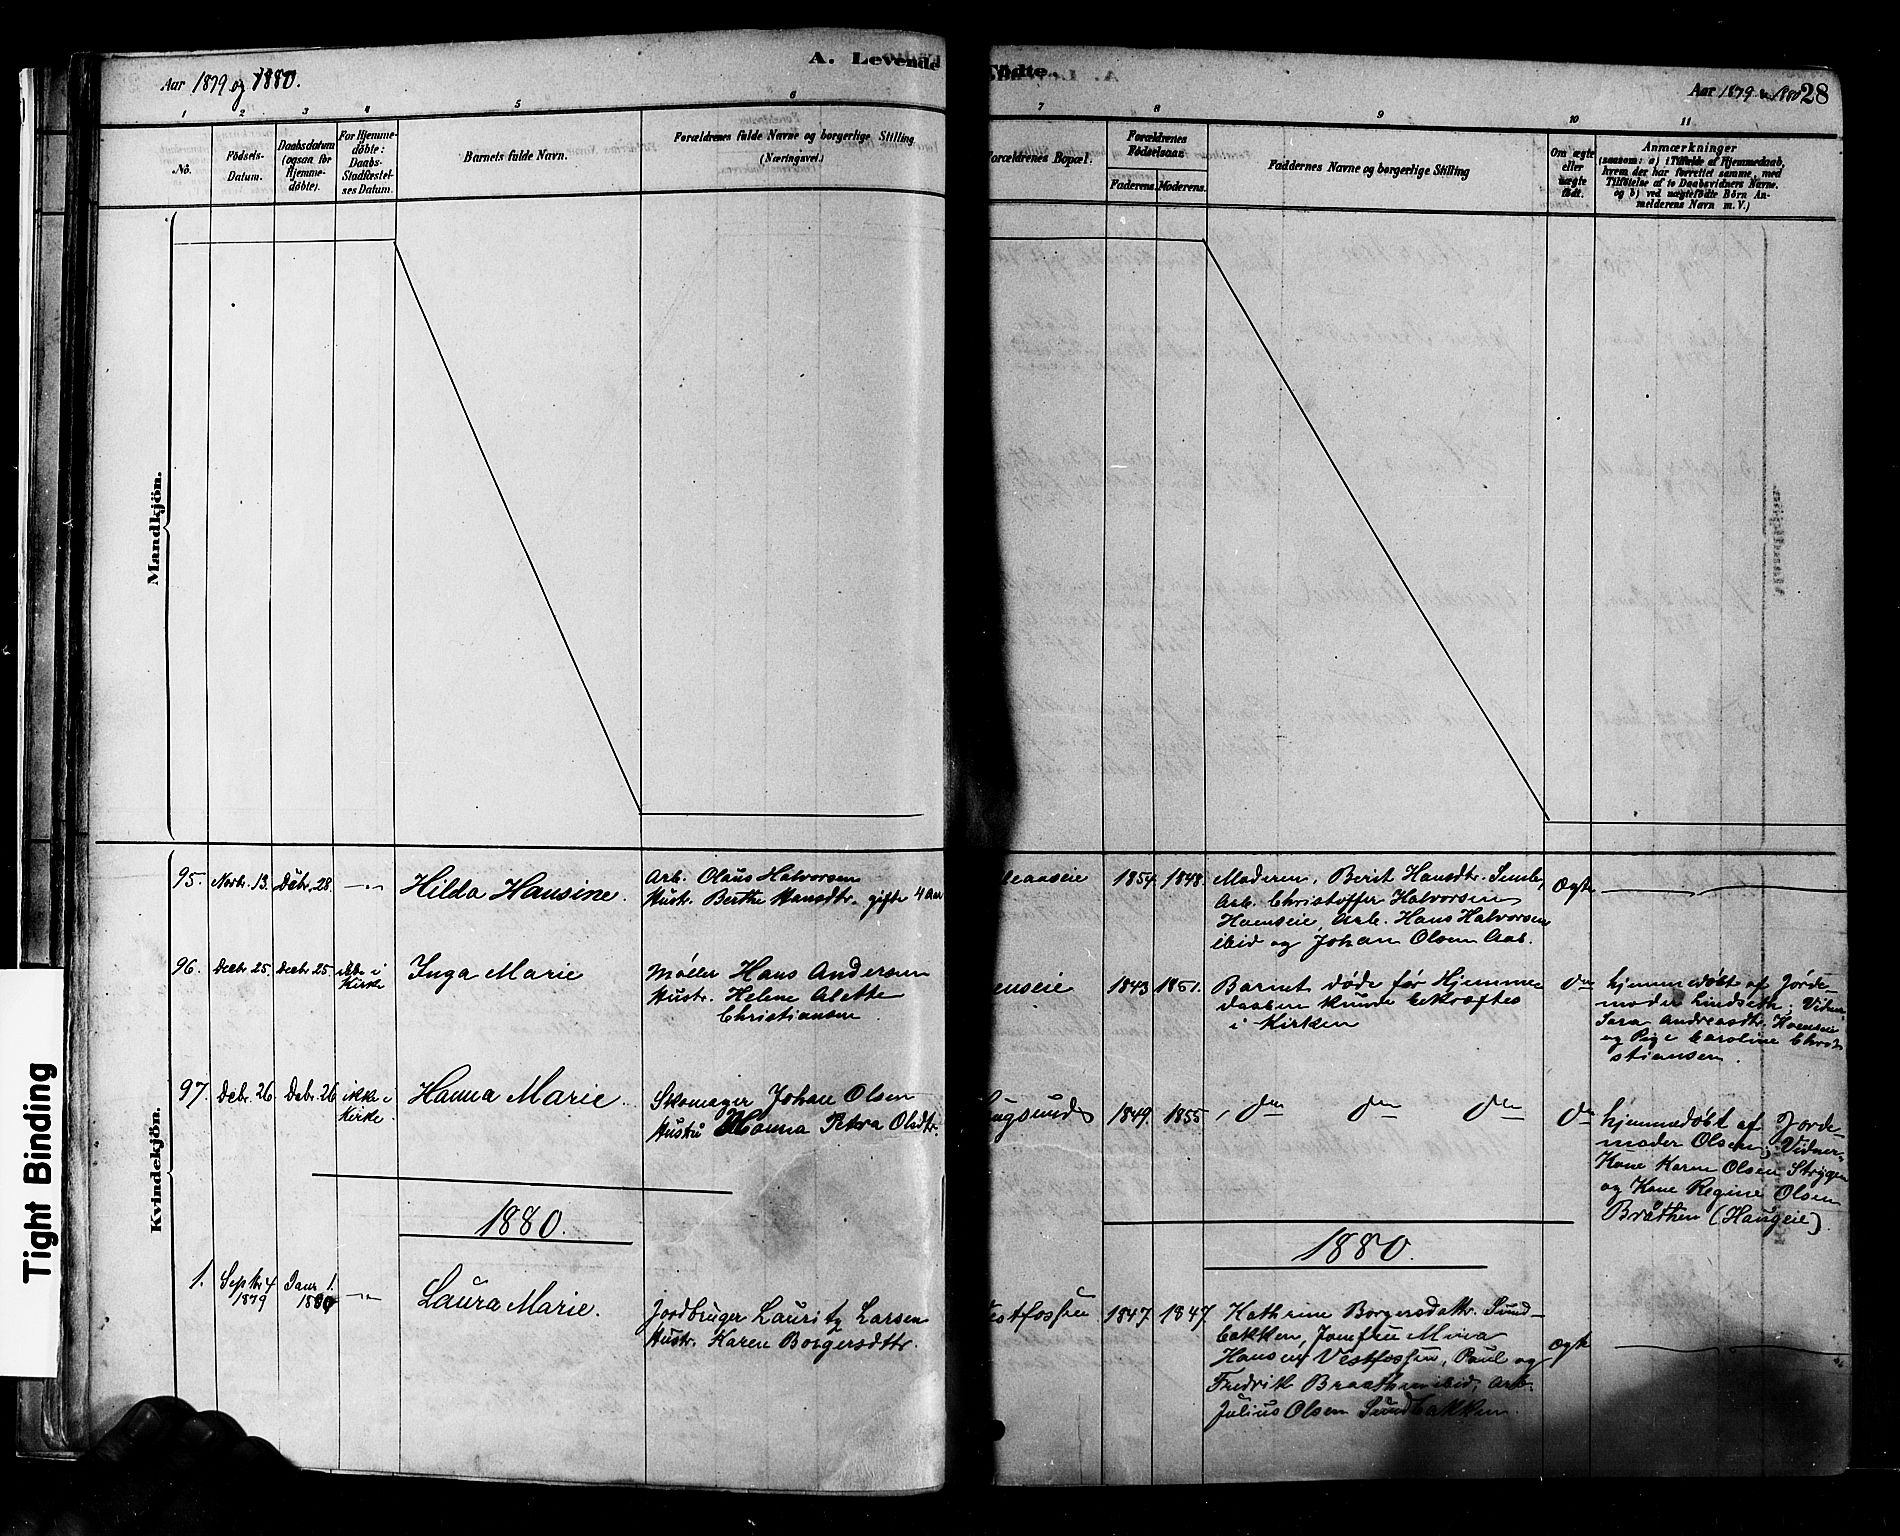 Aar 1879 og 1880.
A. Levende
Fødte.
Aar 1879 1880
28
1 2 3 4 5 6
7 8 9 10 11
No.
Fødsels-
Datum.
Daabsdatum
(ogsaa for
Hjemme-
døbte).
For Hjemme-
døbte:
Daabs-
Stadfæstel-
ses Datum.
Barnets fulde Navn.
Forældrenes fulde Navne og borgerlige Stilling
(Næringsvei.)
Forældrenes Bopæl.
Forældrenes
Fødselsaar.
Faderens. Moderens.
Faddernes Navne og borgerlige Stilling
Om ægte
eller
uægte
født.
Anmærkninger
(saasom: a) i Tilfælde af Hjemmedaab,
hvem der har forrettet samme, med
Tilføielse af to Daabsvidners Navne.
og b) ved uægtefødte Børn An-
melderens Navn m. V.)
Mandkjön.
Kvindekjön.
95. Novbr. 13. Debr. 28. —"— Hilda Hansine.
Arb. Olaus Halvorsen
Hustr. Berthe Hansdtr. gifte 4 Aar
1854 1848.
Moderen, Berit Hansdtr.
Arb. Christoffer Halvorsen
Hoenseie, Arb. Hans Halvorsen
ibid og Johan Olsen Aas.
Ægte
96. Decbr. 25. Decbr. 25. ikke i
Kirke
Inga Marie
Møller Hans Andersen
Hustr. Helene Alette
Christiansen
enseie 1843 1851.
Barnet døde før Hjemme-
daaben kunde bekræftes
i Kirken
do
hjemmedøbt af Jorde-
moder Lindseth; Vidner
Sara Andreasdtr. Hoenseie
og Pige Caroline Chri-
stiansen.
97. Debr. 26 Debr. 26 ikke i
Kirke.
Hanna Marie.
Skomager Johan Olsen
Hustru Hanna Petra Olsdtr.
ugsund 1849. 1855
do do do
do
hjemmedøbt af Jorde-
moder Olsen; Vidner:
Kone Karen Olsen Strygen
og Kone Regine Olsen
Bråthen (Haugeie).
1880.
1880.
1. Septbr 4
1879
Janr 1.
1880
—"—
Laura Marie.
Jordbruger Lauritz Larsen
Hustr. Karen Borgersdttr.
Vestfossen 1847. 1847.
Kathrine Borgersdattr. Sund-
bakken, Jomfru Mina
Hansen Vestfossen, Paul og
Fredrik Braathen ibid, Arb.
Julius Olsen Sundbakken.
Ægte
Tight Binding